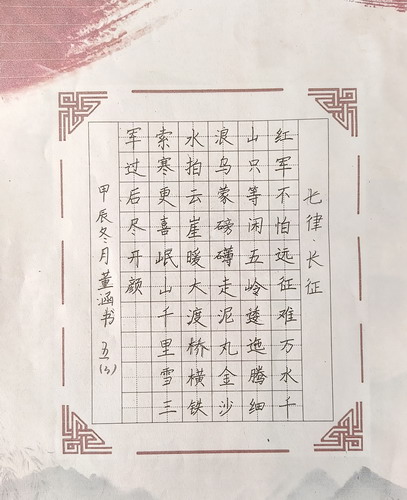 七律·长征
红军不怕远征难万水千
山只等闲五岭逶迤腾细
浪乌蒙磅礴走泥丸金沙
水拍云崖暖大渡桥横铁
索寒更喜岷山千里雪三
军过后尽开颜
甲辰冬月董涵书 五